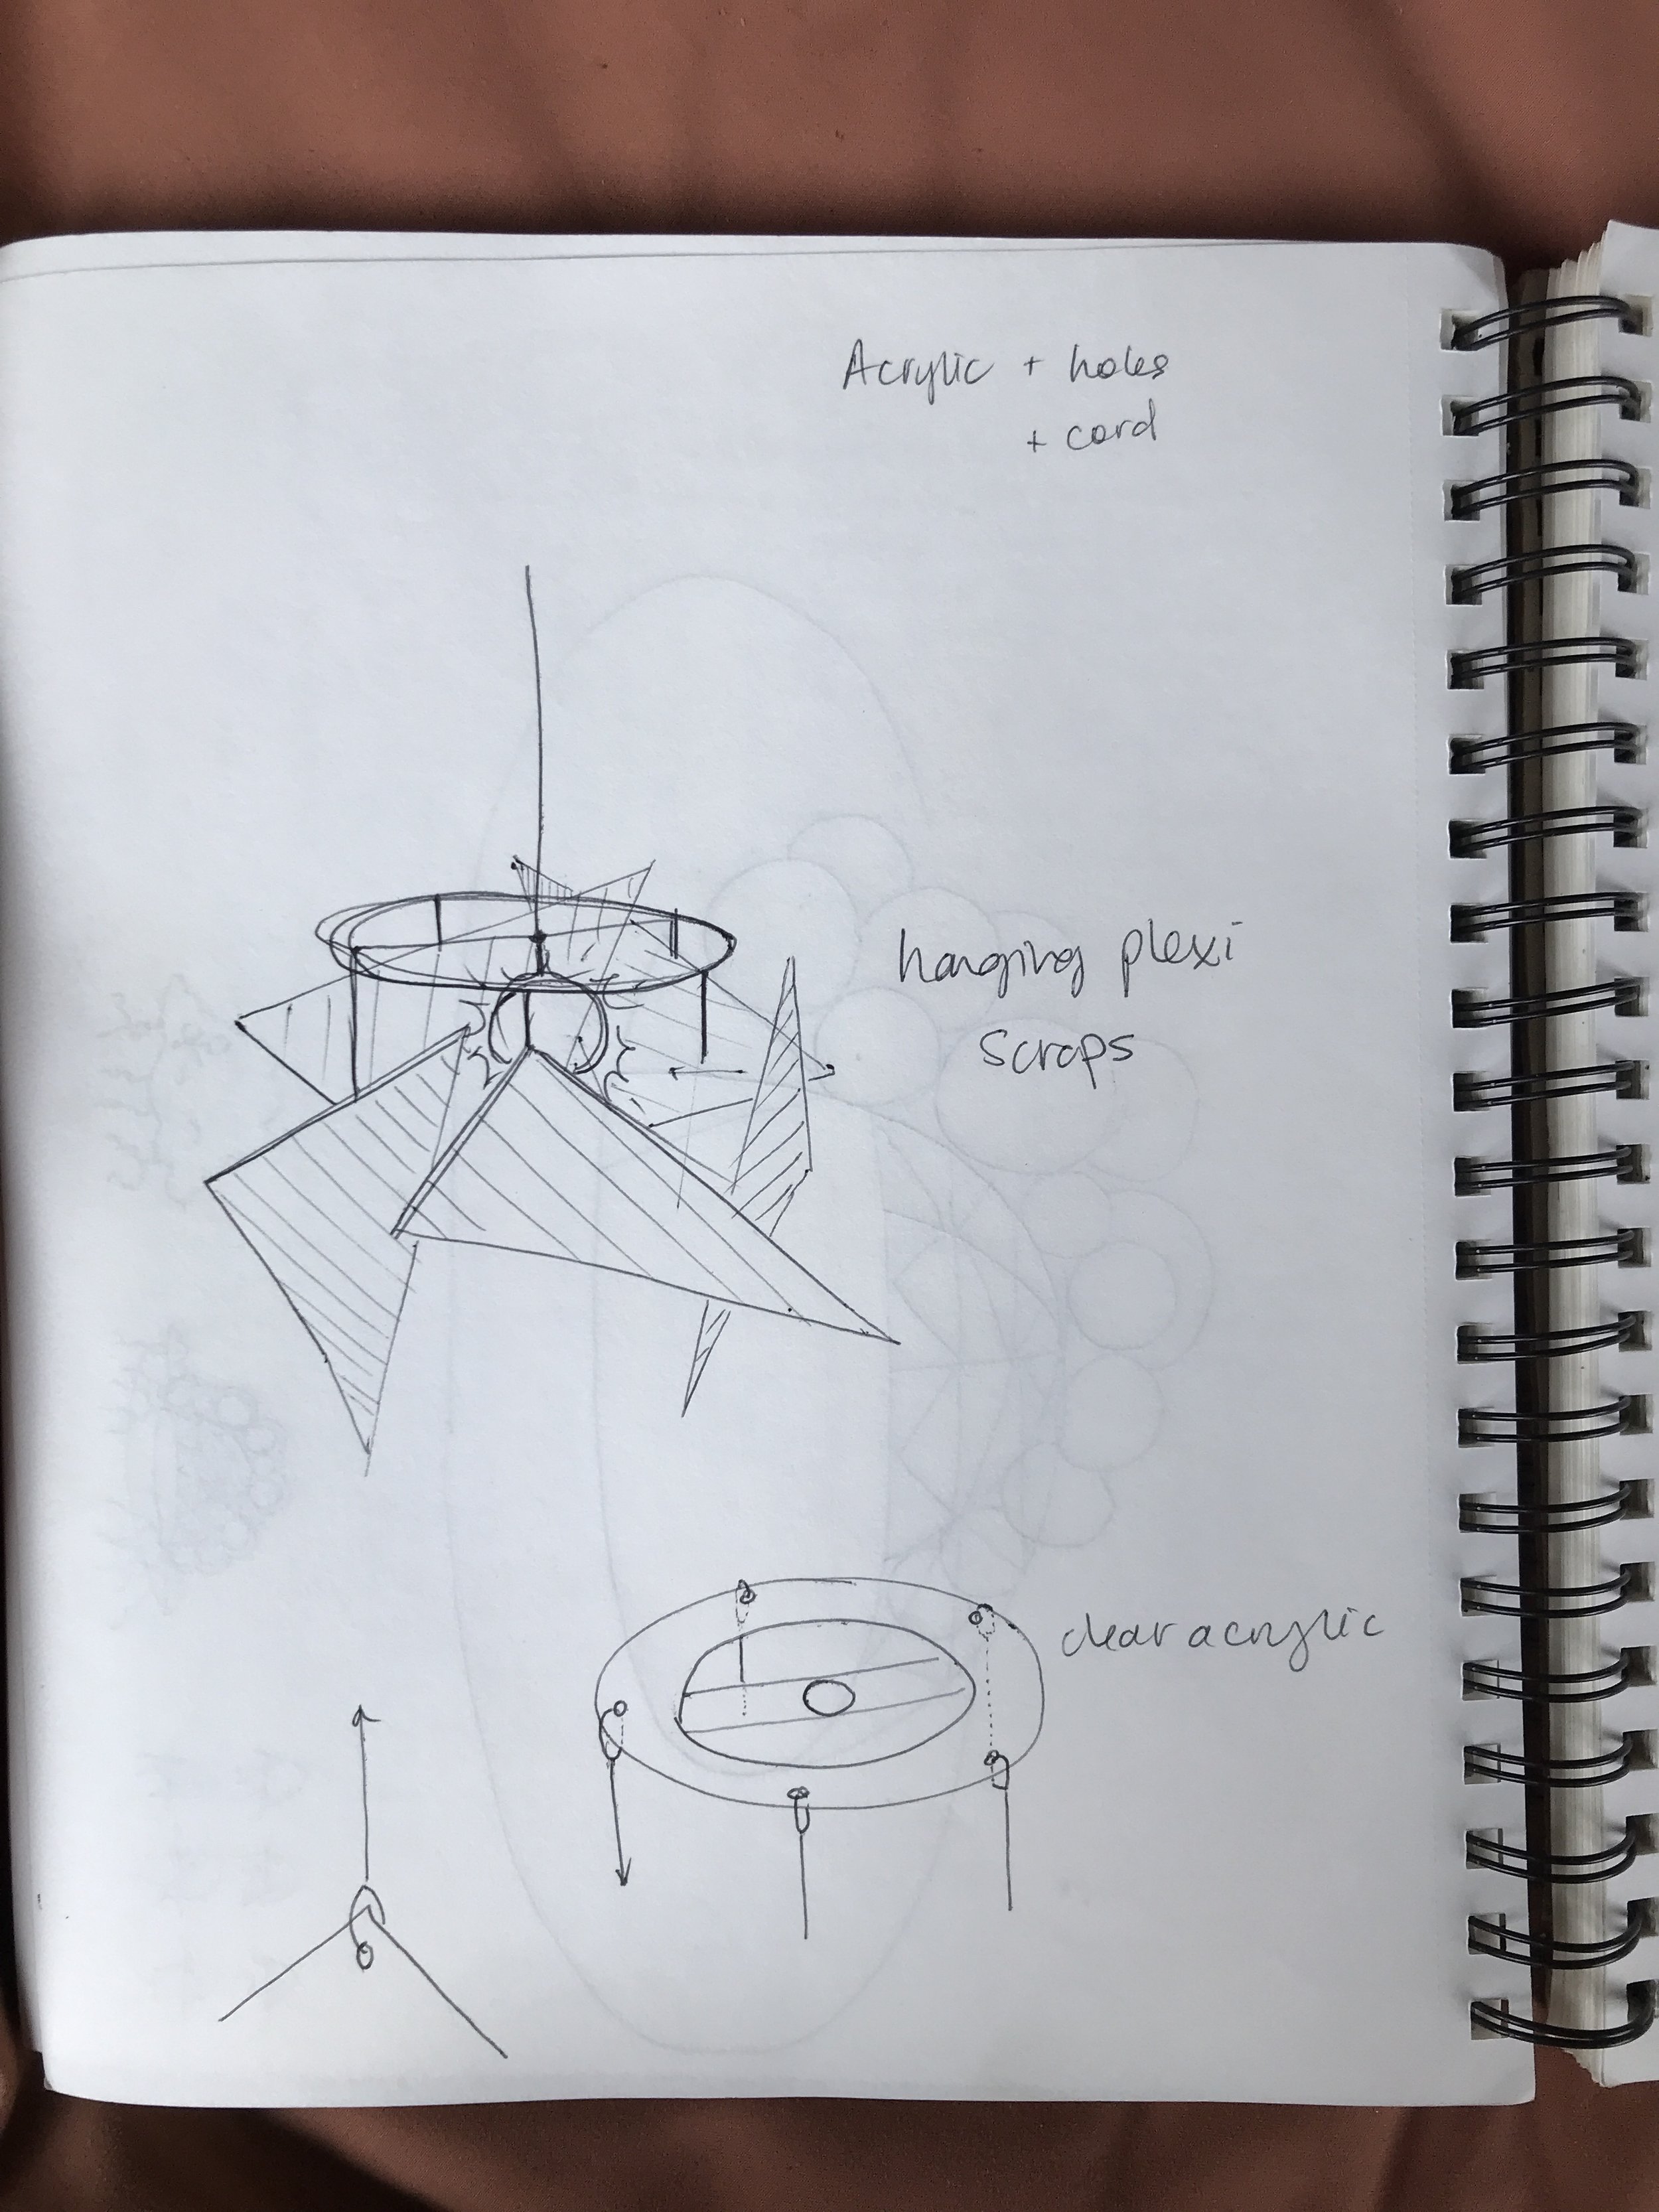 Acrylic + holes
+ cord
hanging plexi
scraps
clear acrylic